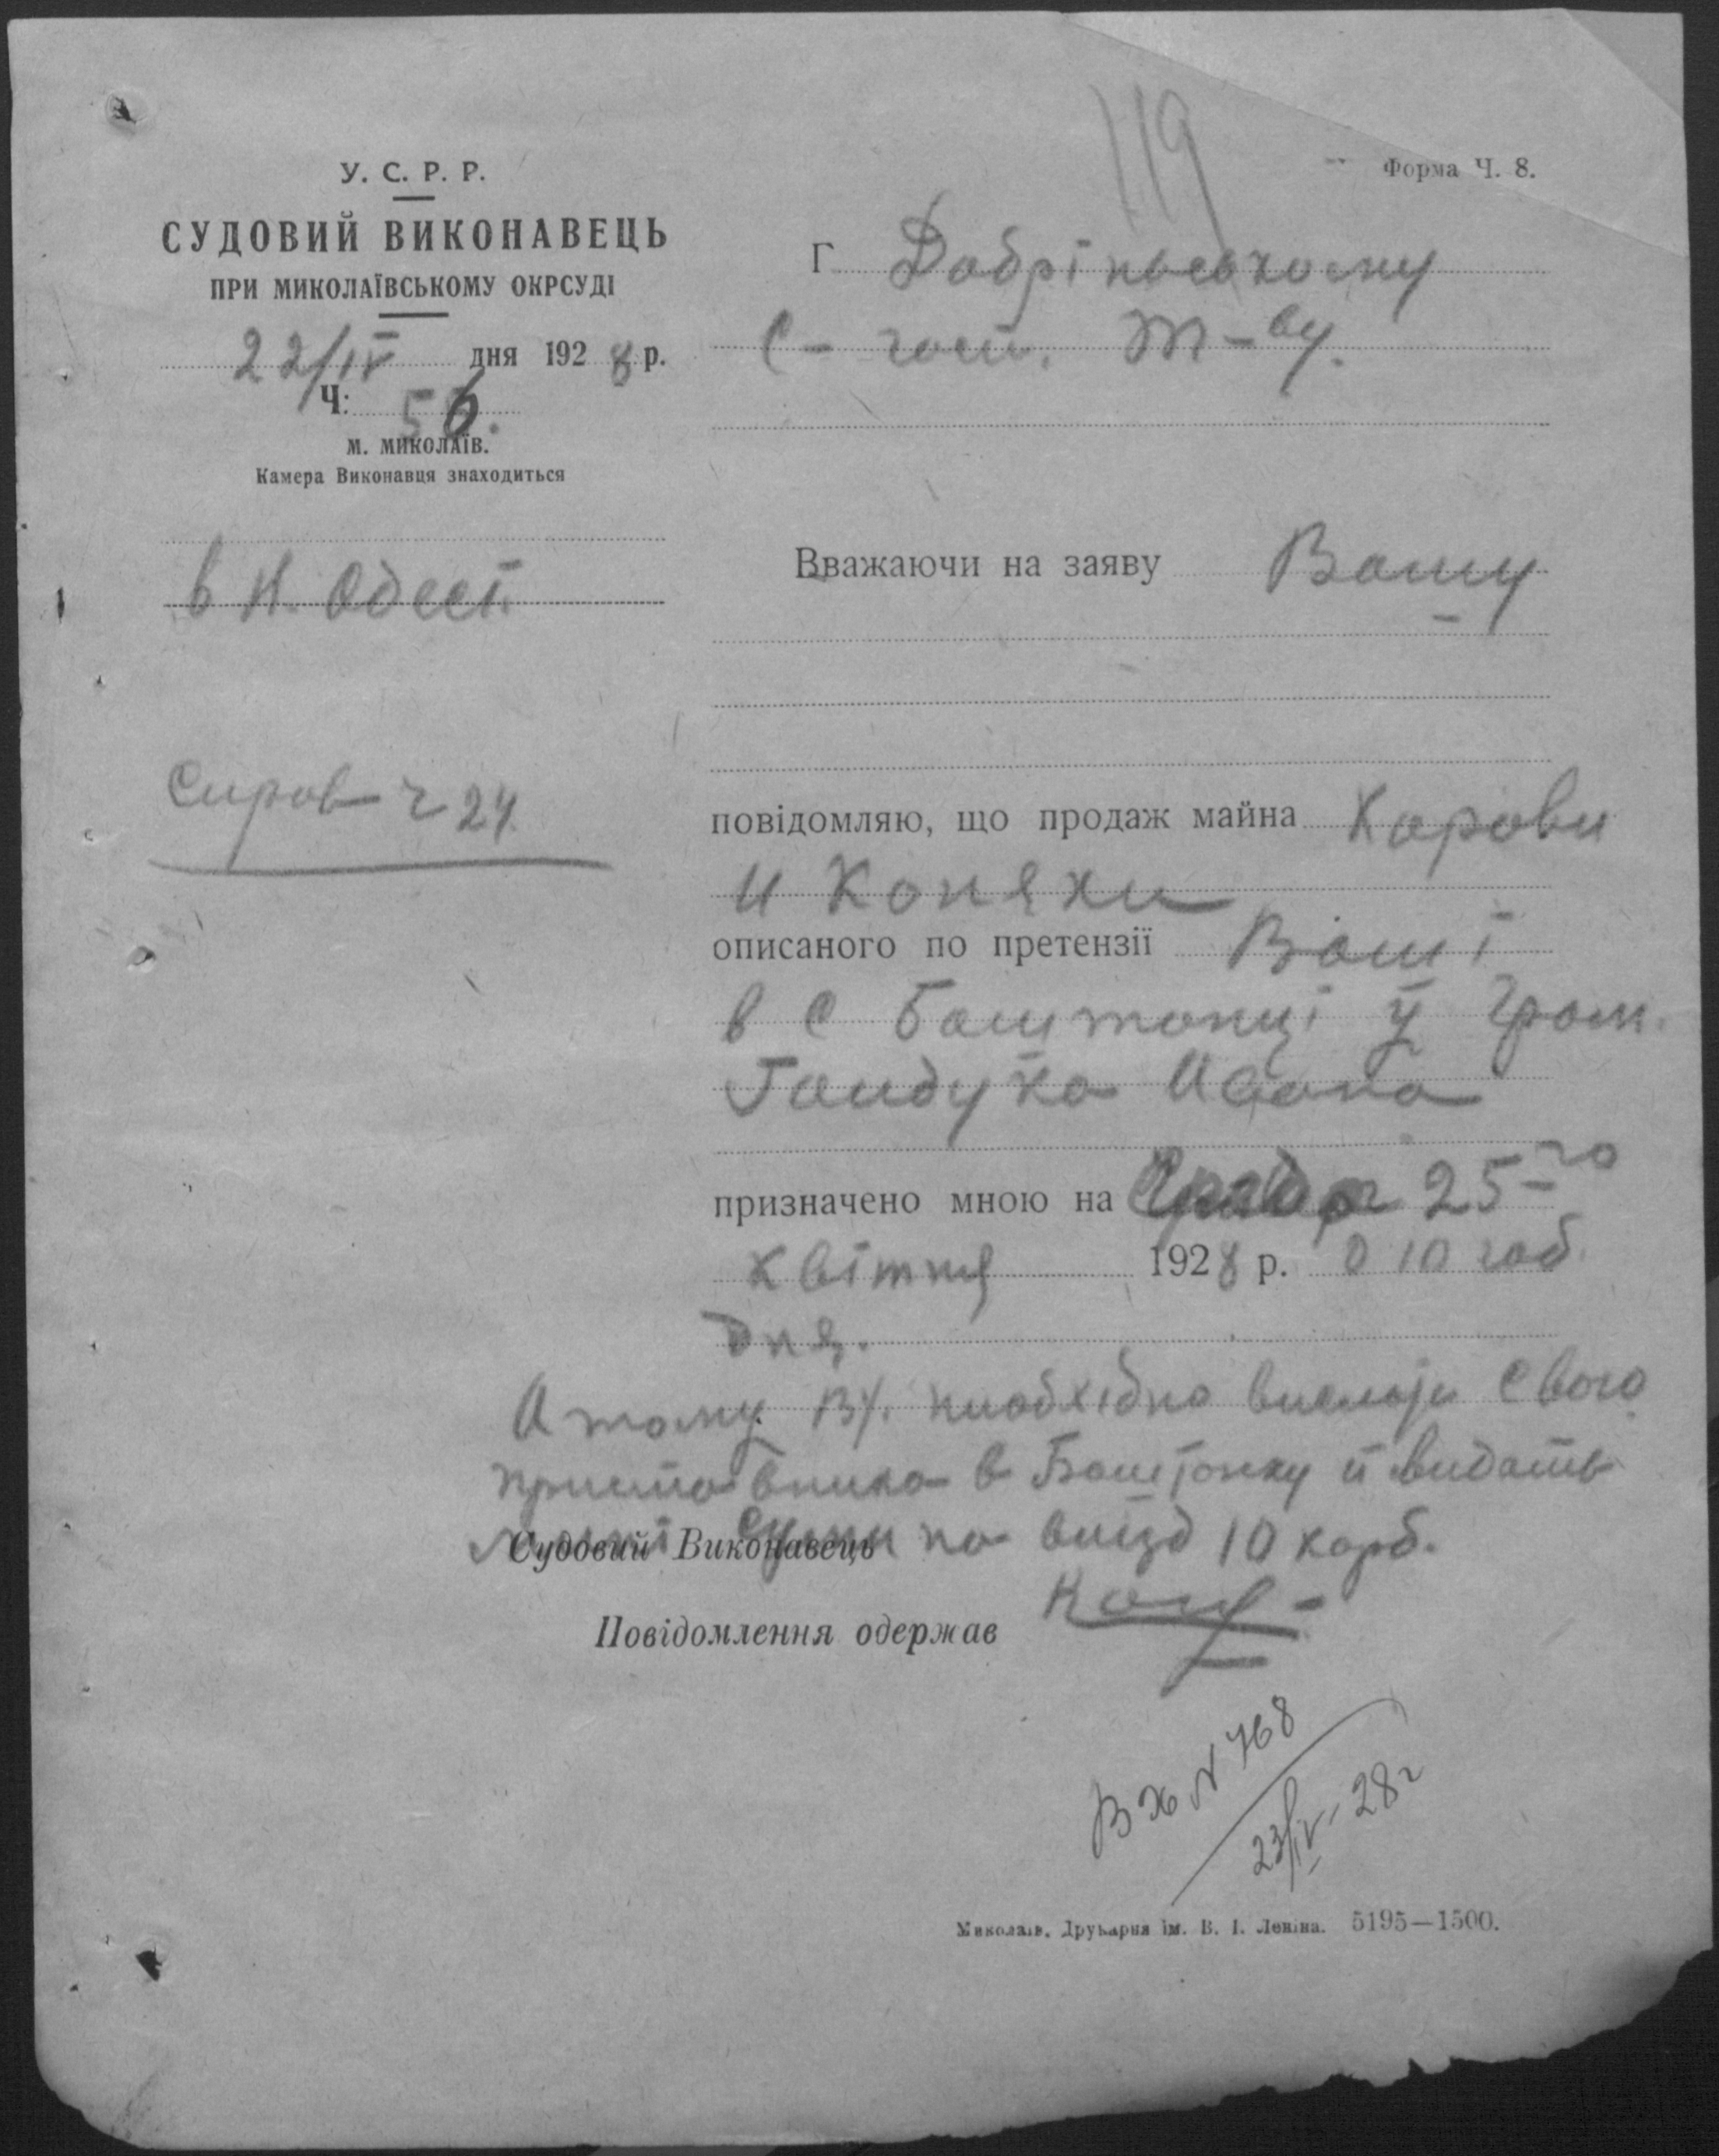 119
Форма Ч. 8.
У. С. Р. Р.
СУДОВИЙ ВИКОНАВЕЦЬ
ПРИ МИКОЛАЇВСЬКОМУ ОКРСУДІ
22/IV дня 1928 р.
Ч: 56.
м. МИКОЛАЇВ.
Камера Виконавця знаходиться
в Н. Одесі
Г Добрінському
С-госп. т-ву.
Вважаючи на заяву Вашу
Справ ч 24
повідомляю, що продаж майна Корови
и Коняки
описаного по претензії Ваші
в с Баштанці у Гром.
Гайдука Ивана
призначено мною на 25-го
квітня 1928 р. о 10 год.
дня.
А тому Вам необхідно вислати свого
в Баштанку й видать
на виїзд 10 карб.
Судовий Виконавець
Повідомлення одержав
Вх N 768
23/IV-28 г
Миколаїв. Друкарня ім. В. І. Леніна. 5195—1500.